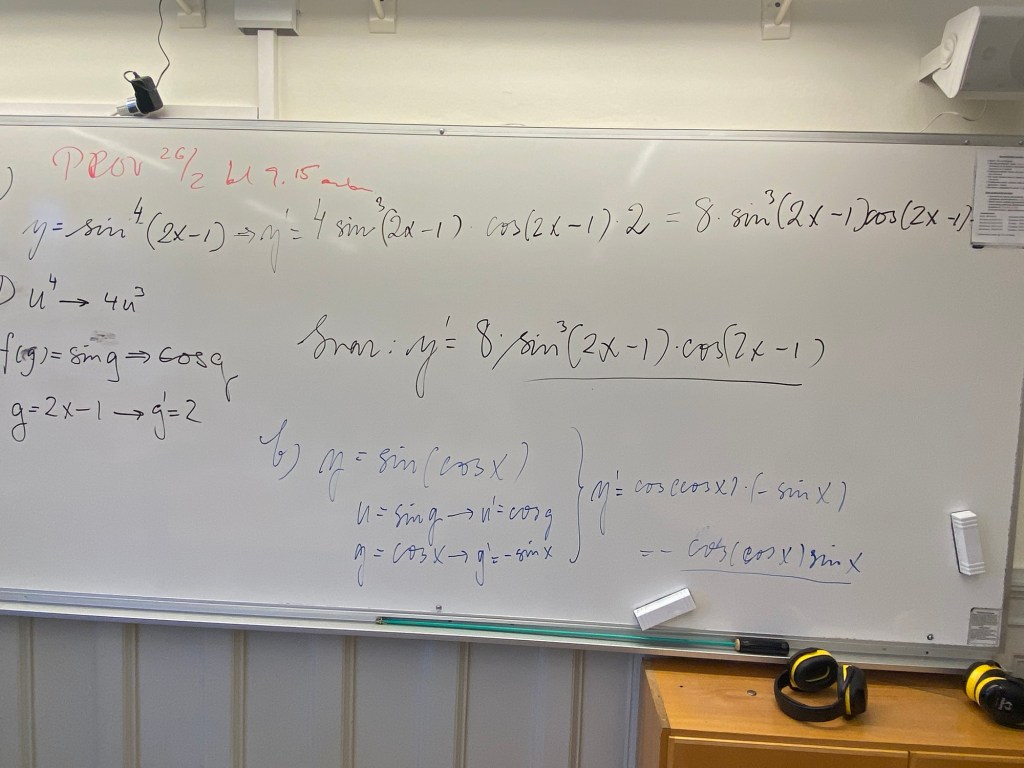 PROV 26/2 kl 9.15
)
y = sin⁴(2x-1) ⇒ y' = 4 sin³(2x-1) · cos(2x-1) · 2 = 8 · sin³(2x-1)cos(2x-1)
) u⁴ → 4u³
f(g) = sin g ⇒ cos g
g = 2x-1 → g' = 2
Svar: y' = 8 · sin³(2x-1) · cos(2x-1)
b) y = sin(cos x)
u = sin g → u' = cos g
g = cos x → g' = - sin x
} y' = cos(cos x) · (- sin x)
= - cos(cos x) sin x